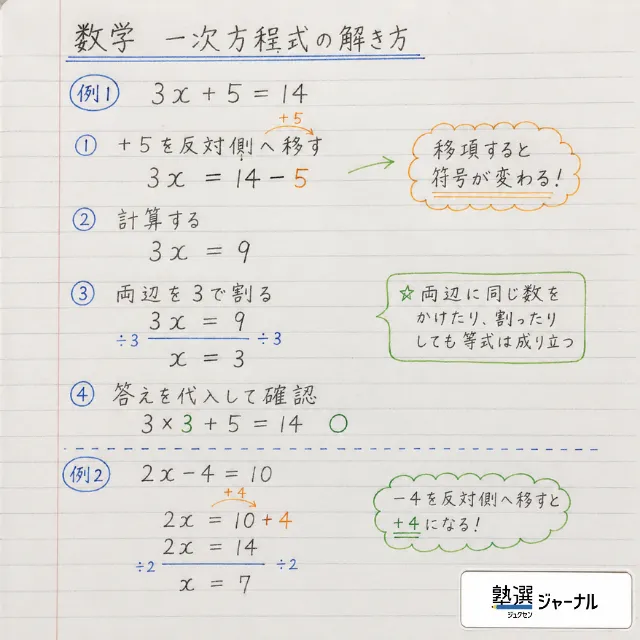 数学 一次方程式の解き方
例1 3x + 5 = 14
+5
① +5を反対側へ移す
3x = 14 - 5
移項すると
符号が変わる!
② 計算する
3x = 9
③ 両辺を3で割る
3x = 9
÷3 ÷3
x = 3
☆両辺に同じ数を
かけたり、割ったり
しても等式は成り立つ
④ 答えを代入して確認
3×3 + 5 = 14 ○
例2 2x - 4 = 10
+4
2x = 10 + 4
2x = 14
÷2 ÷2
x = 7
-4を反対側へ移すと
+4になる!
塾選ジャーナル
ジュクセン